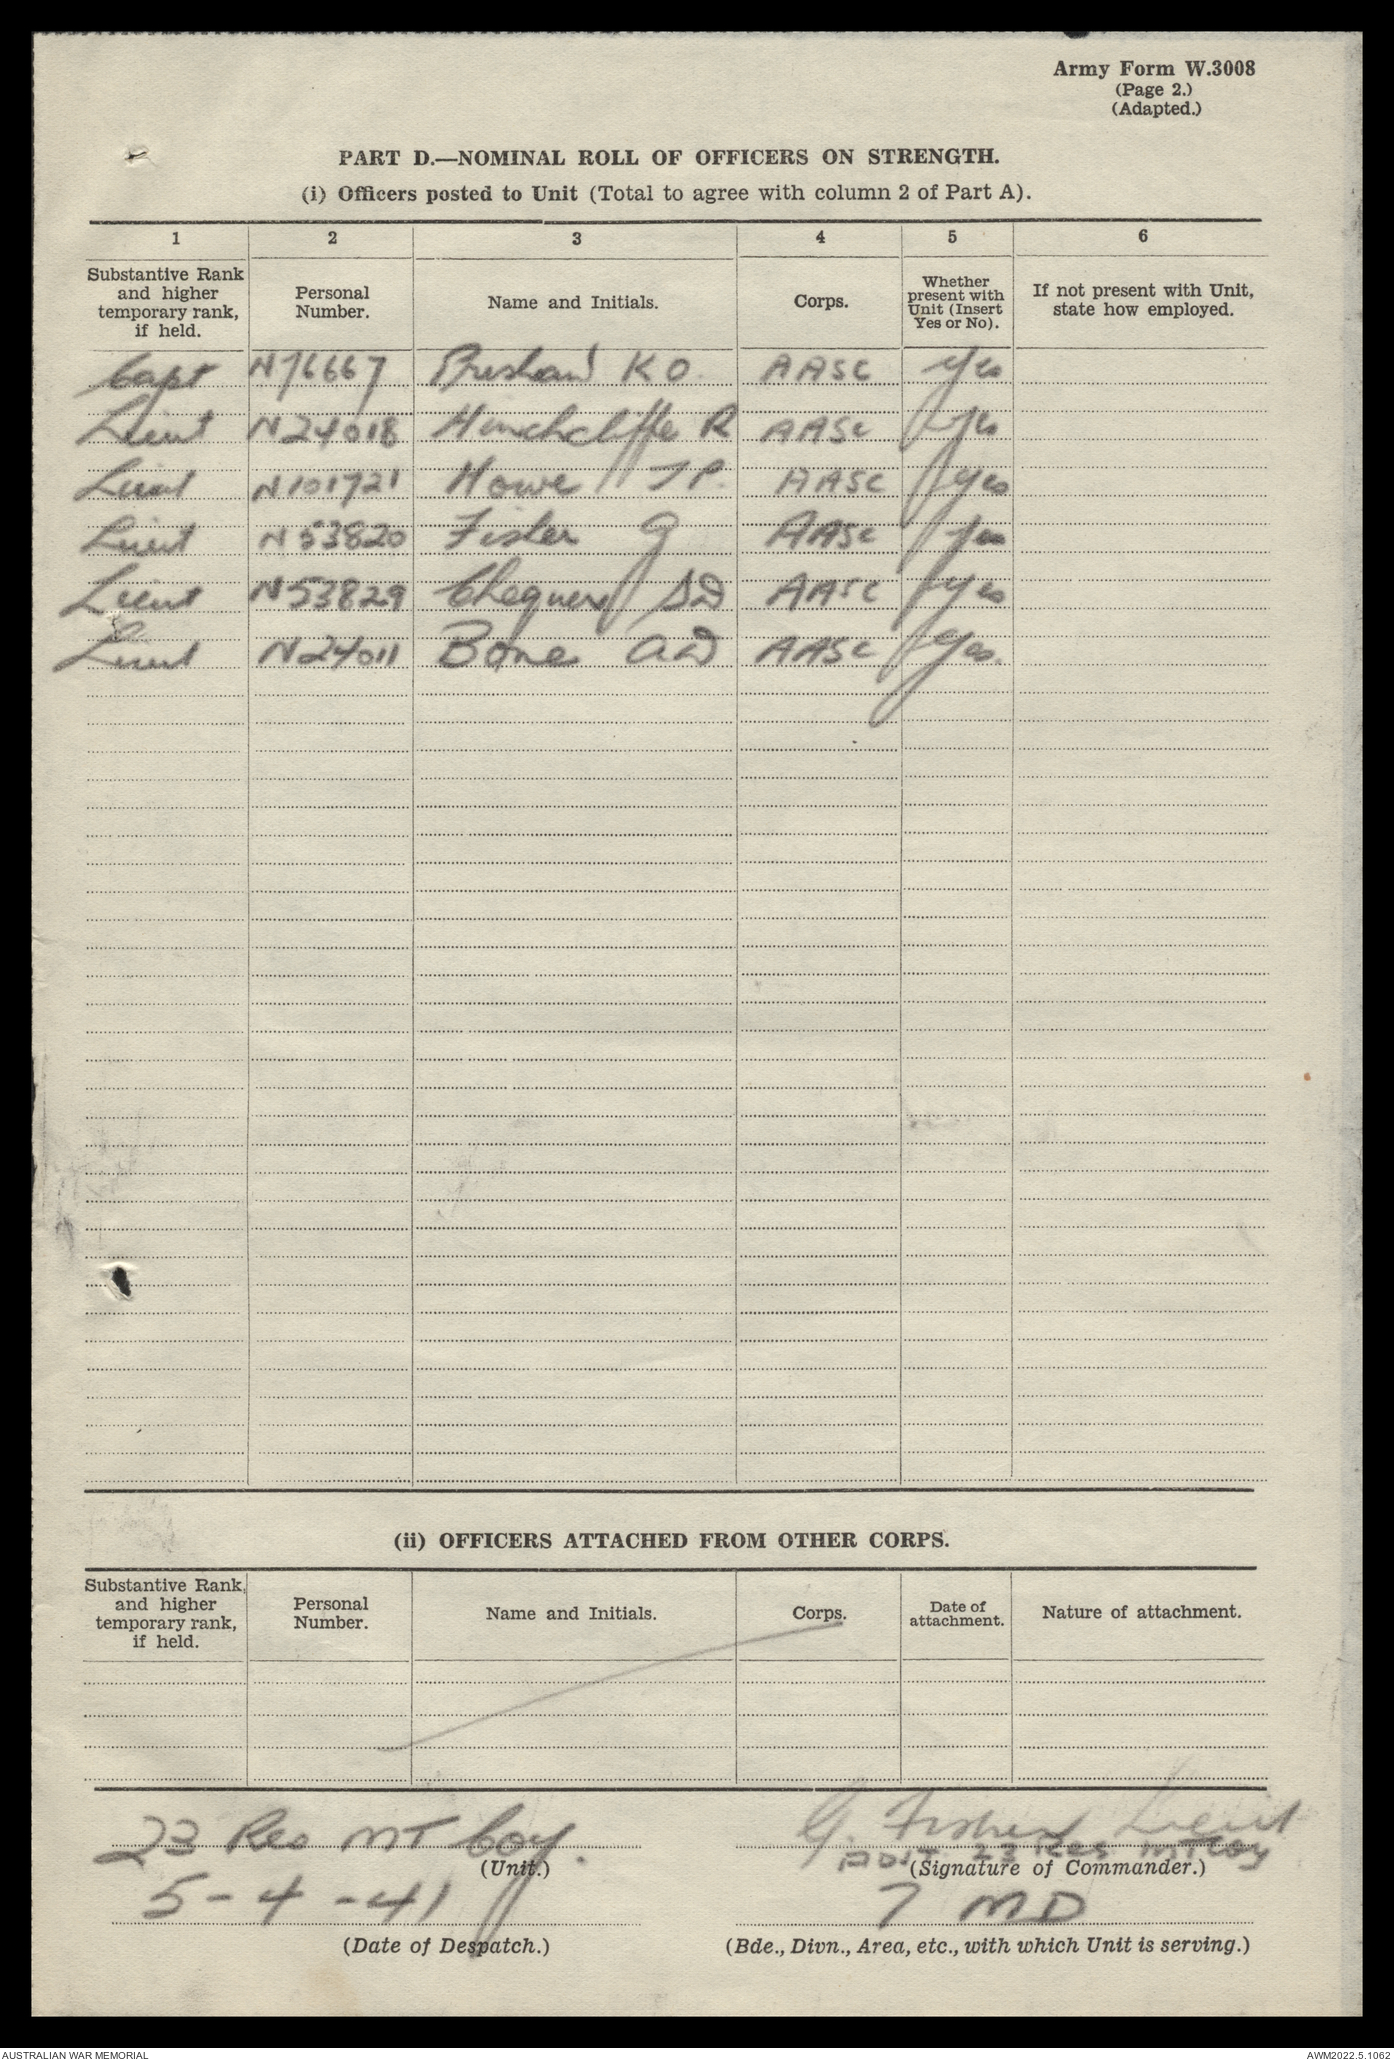 Army Form W.3008
(Page 2.)
(Adapted.)
PART D.—NOMINAL ROLL OF OFFICERS ON STRENGTH.
(i) Officers posted to Unit (Total to agree with column 2 of Part A).
1 2 3 4 5 6
Substantive Rank and higher temporary rank, if held. Personal Number. Name and Initials. Corps. Whether present with Unit (Insert Yes or No). If not present with Unit, state how employed.
Capt N76667 K O AASC Yes
Lieut N24018 Hinchcliffe R AASC Yes
Lieut N101721 Howe J P. AASC Yes
Lieut N53820 Fisher G AASC Yes
Lieut N53829 Chequer AASC Yes
Lieut N24011 Bone A D AASC Yes.
(ii) OFFICERS ATTACHED FROM OTHER CORPS.
Substantive Rank, and higher temporary rank, if held. Personal Number. Name and Initials. Corps. Date of attachment. Nature of attachment.
23 Res MT Coy. G. Fisher Lieut
ADJT 23 Res MT Coy
(Unit.) (Signature of Commander.)
5-4-41 7 MD
(Date of Despatch.) (Bde., Divn., Area, etc., with which Unit is serving.)
AUSTRALIAN WAR MEMORIAL AWM2022.5.1062